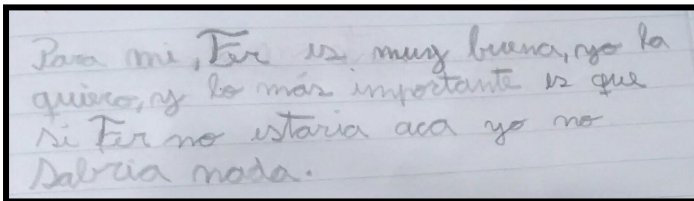 Para mi, Fer es muy buena, yo la
quiero, y lo más importante es que
si Fer no estaria aca yo no
sabria nada.